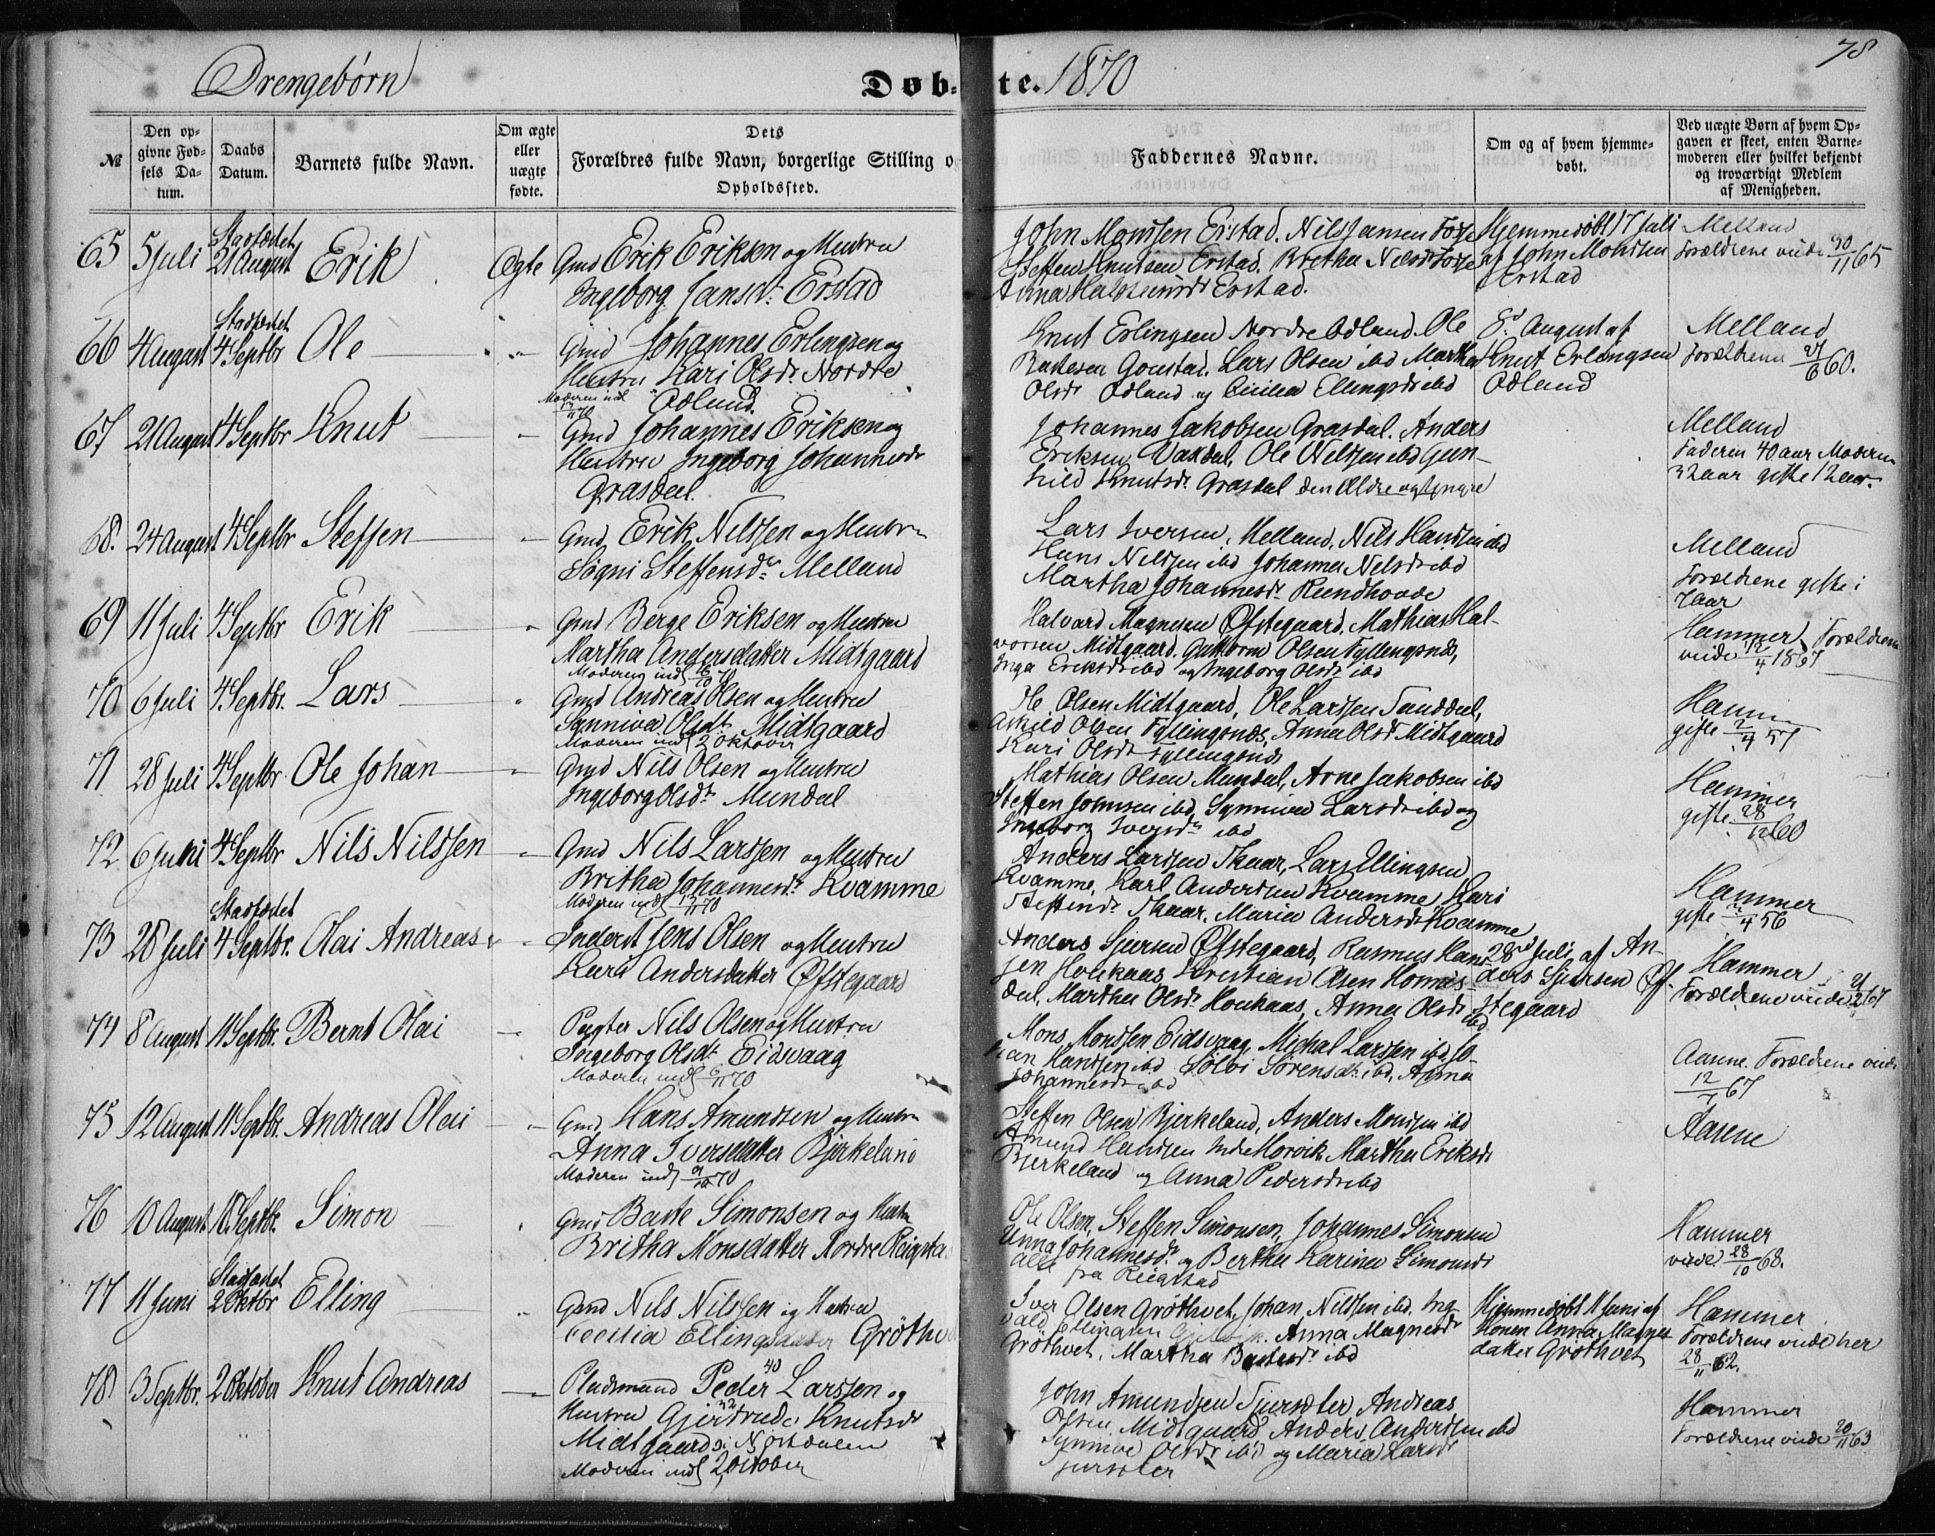 78
Drengebørn
Døbte. 1870
№
Den opgivne Fødsels Datum.
Daabs Datum.
Barnets fulde Navn.
Om ægte eller uægte fødte.
Dets Forældres fulde Navn, borgerlige Stilling o
Opholdssted.
Faddernes Navne.
Om og af hvem hjemmedøbt.
Ved uægte Børn af hvem Opgaven er skeet, enten Barnemoderen eller hvilket bekjendt og troværdigt Medlem af Menigheden.
65 5 Juli Stadfæstet 21 August Erik Ægte Gmd Erik Eriksen og Hustru
Ingeborg Jansdr. Erstad
John Monssen Erstad, Nils Jansen Fosse
Steffen Knutsen Erstad. Britha Nilsdr Fosse
Anna Halsteinsdr Erstad.
Hjemmedøbt 17 Juli
af John Monssen
Erstad
Melland
Forældrene viede 30/11 65
66 4 August Stadfæstet 4 Septbr Ole Gmd Johannes Erlingsen og
Hustru Kari Olsdr. Nordre
Moderen indl 13/11 70 Odland.
Knut Erlingsen Nordre Odland. Ole
Baste­sen Gonstad. Lars Olsen ibd Martha
Olsdr Odland og Cicilia Ellingsdr ibd
8de August af
Knut Erlingsen
Odland
Melland
Forældrene 24/6 60.
67 21 August 4 Septbr Knut Gmd Johannes Eriksen og
Hustru Ingeborg Johannesdr
Grasdal.
Johannes Jakobsen Grasdal. Anders
Eriksen Vaxdal, Ole Nilssen ibd Gun-
hild Knutsdr. Grasdal den Ældre og Yngre
Melland
Faderen 40 aar Moderen
32 aar gifte 12 aar.
68. 24 August 4 Septbr Steffen Gmd. Erik Nilssen og Hustru
Søgni Steffensdr. Melland
Lars Iversen, Melland, Nils Hanssen ibd
Hans Nilssen ibd Johanna Nelsdr ibd
Martha Johannesdr. Rundhovde
Melland
Forældrene gifte i
7 aar
69 11 Juli 4 Septbr Erik Gmd Berge Eriksen og Hustru
Martha Andersdatter Midtgaard
Moderen indl 16/10 70
Halvard Magnesen Øfstegaard. Mathias Hal-
vorsen Midtgaard. Guttorm Olsen Fyllingsnes,
Inga Eriksdr ibd og Ingeborg Olsdr. ibd
Hammer Forældrene
viede 12/4 1867
70 6 Juli 4 Septbr. Lars Gmd Andreas Olsen og Hustru
Synniva Olsdr. Midtgaard
Moderen indl 2 Oktober
Ole Olsen Midtgaard, Ole Larssen Tanddal,
Askild Olsen Fyllingsnes, Anna Olsdr Midtgaard
Kari Olsdr Fyllingsnes
Hammer
gifte 2/4 57
71 28 Juli 4 Septbr. Ole Johan Gmd Nils Olsen og Hustru
Ingeborg Olsdr. Mundal
Mathias Olsen Mundal, Arne Jakobsen ibd
Steffen Johnsen ibd, Synniva Larsdr ibd og
Ingeborg Iversdr. ibd
Hammer
gifte 28/12 60
72 6 Juni 4 Septbr Nils Nilssen Gmd Nils Larssen og Hustru
Britha Johannesdr. Kvamme
Moderen indl 13/11 70
Anders Larssen Skaar, Lars Ellingsen
Kvamme, Karl Anderssen Kvamme Kari
Steffensdr. Skaar, Maria Andersdr Kvamme
Hammer
gifte 4 56
73 28 Juli Stadfæstet 4 Septbr. Olai Andreas Inderst Jens Olsen og Hustru
Kari Andersdatter Øfstegaard
Anders Sjursen Øfstegaard, Rasmus Hans-
sen Houkaas, Kristian Olsen Hornes-
dal, Martha Olsdr. Houkaas, Anna Olsdr. ibd
28de Juli af An-
ders Sjursen Øf-
stegaard
Hammer
Forældrene viede 21/2 67
74 8 August 11 Septbr. Bernt Olai Pagter Nils Olsen og Hustru
Ingeborg Olsdr. Eidsvaag
Moderen indl 6/11 70
Mons Monssen Eidsvaag, Michal Larssen ibd Jo-
han Hanssen ibd Sølvi Sørensdr. ibd, Anna
Johannesdr ibd
Aasene. Forældrene viede
12/ 67
75 12 August 11 Septbr. Andreas Olai Gmd. Hans Amundsen og Hustru
Anna Iversdatter Bjerkeland
Moderen indl 9/10 70
Steffen Olsen Bjerkeland, Anders Monssen ibd
Amund Hanssen Indre Morvik Martha Eriksdr
Bjerkeland og Anna Pedersdr ibd
Aasene
76 10 August 18 Septbr. Simon Gmd Baste Simonsen og Hustru
Britha Monsdatter Nordre Reigsta
Ole Olsen, Steffen Simonsen, Johannes Simonsen
Anna Johannesdr. og Bertha Karina Simonsdr
alle fra Reigstad
Hammer
viede 28/10 68.
77 11 Juni Stadfæstet 2 Oktbr Elling Gmd Nils Nilssen og Hustru
Cecilia Ellingsdatter Grøthve
Iver Olsen Grøthvet, Johan Nilssen ibd. Ing-
vald Ellingsen Anna Magnesdr
Grøthvet. Martha Bastesdr. ibd
Hjemmedøbt 11 Juni af
Konen Anna Magnes
datter Grøthvet
Hammer
Forældrene viede her
28/11 62.
78 3 Septbr. 2 Oktober Knut Andreas Pladsmand Peder 40 Larssen og
Hustru Gjertrude 32 Knutsdr
Midtgaard i Nordalen
Moderen indl 2 Oktober
John Amundsen Tjursæter Andreas
Olsen Midtgaard Anders Anderssen ibd
Synneve Olsdr ibd og Maria Larsdr
Hammer
Forældrene viede 20/11 63